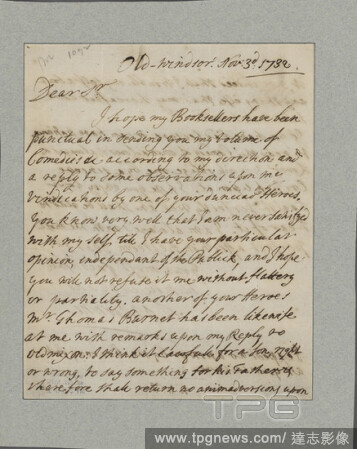 Old-Windsor. Nov. 3d. 1732.
Dear Sr
I hope my Booksellers have been
punctual in sending you my volume of
Comedies &c according to my direction and
a reply to some observations upon me
vindications by one of your Dunciad Heroes,
You know very well that I am never Satisfy'd
with my self, till I have your particular
opinion, independant of the Publick, and I hope
you will not refuse it me without flattery
or partiality. another of your Heroes
Mr. Thomas Burnet has been likewise
at me with remarks upon my Reply to
Oldmixon. I think it lawful for a son, right
or wrong, to say something for his Father &
therefore shall return no animadversions upon
TPG
www.tpgnews.com / 達志影像